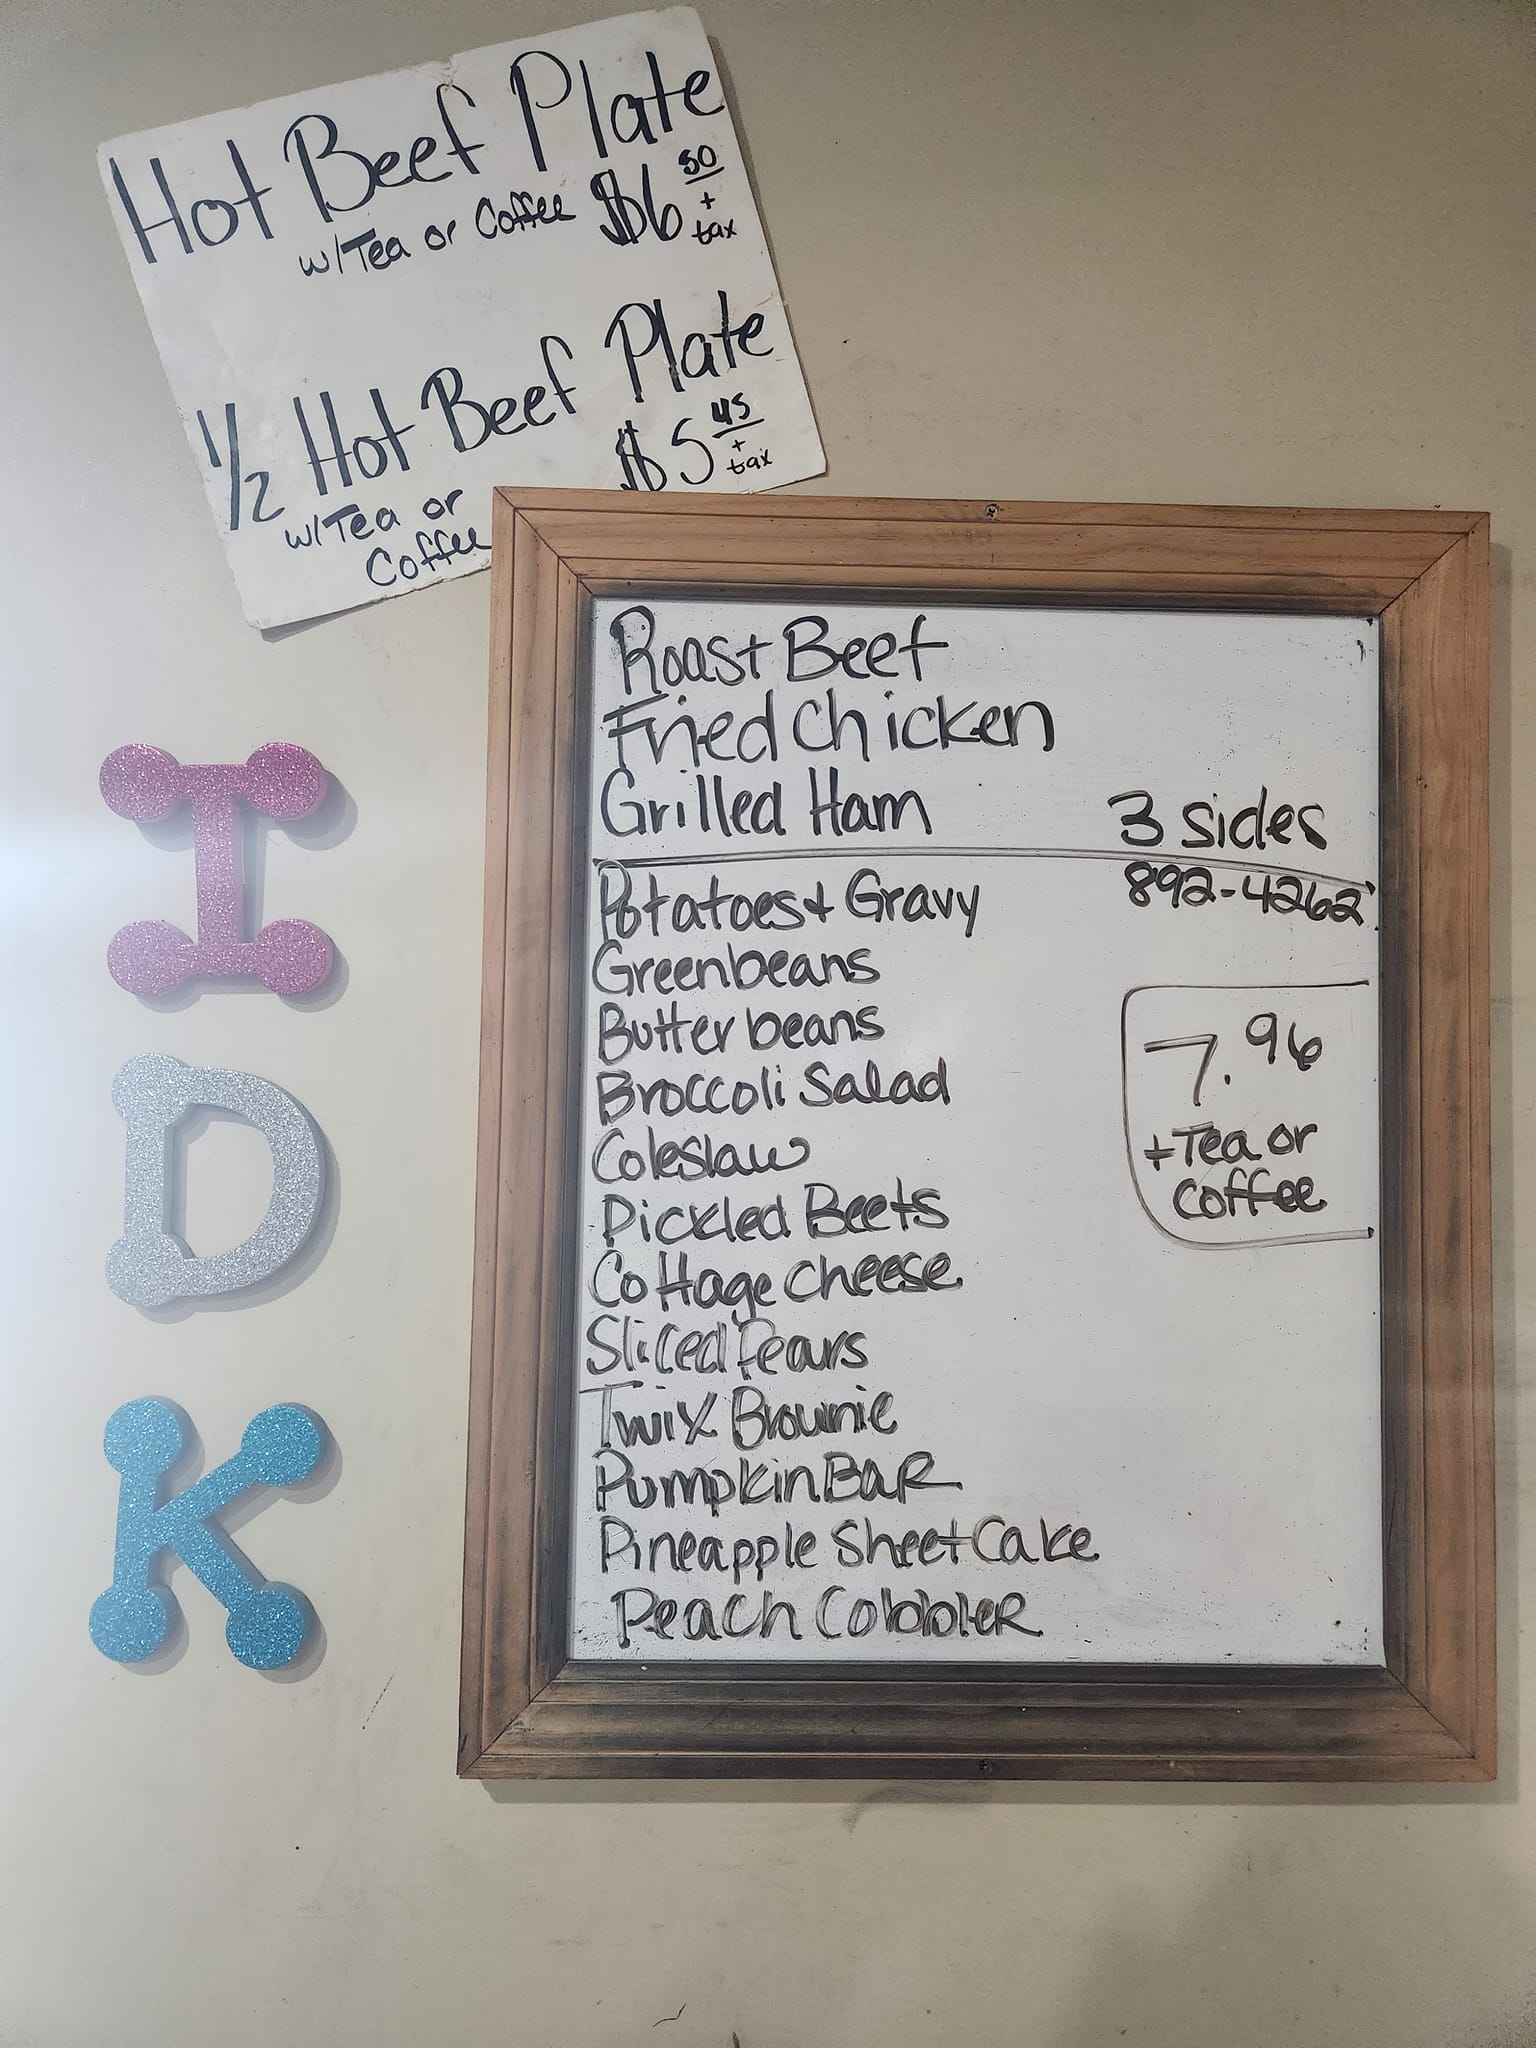 Hot Beef Plate
w/Tea or Coffee $6 50 + tax
1/2 Hot Beef Plate
$5 45 + tax
w/Tea or
Coffee
I
D
K
Roast Beef
Fried Chicken
Grilled Ham
3 sides
892-4262
Potatoes + Gravy
Greenbeans
Butter beans
Broccoli Salad
Coleslaw
Pickled Beets
Cottage Cheese
Sliced Pears
Twix Brownie
Pumpkin BaR
Pineapple Sheet Cake
Peach CobbleR
7.96
+ Tea or
Coffee